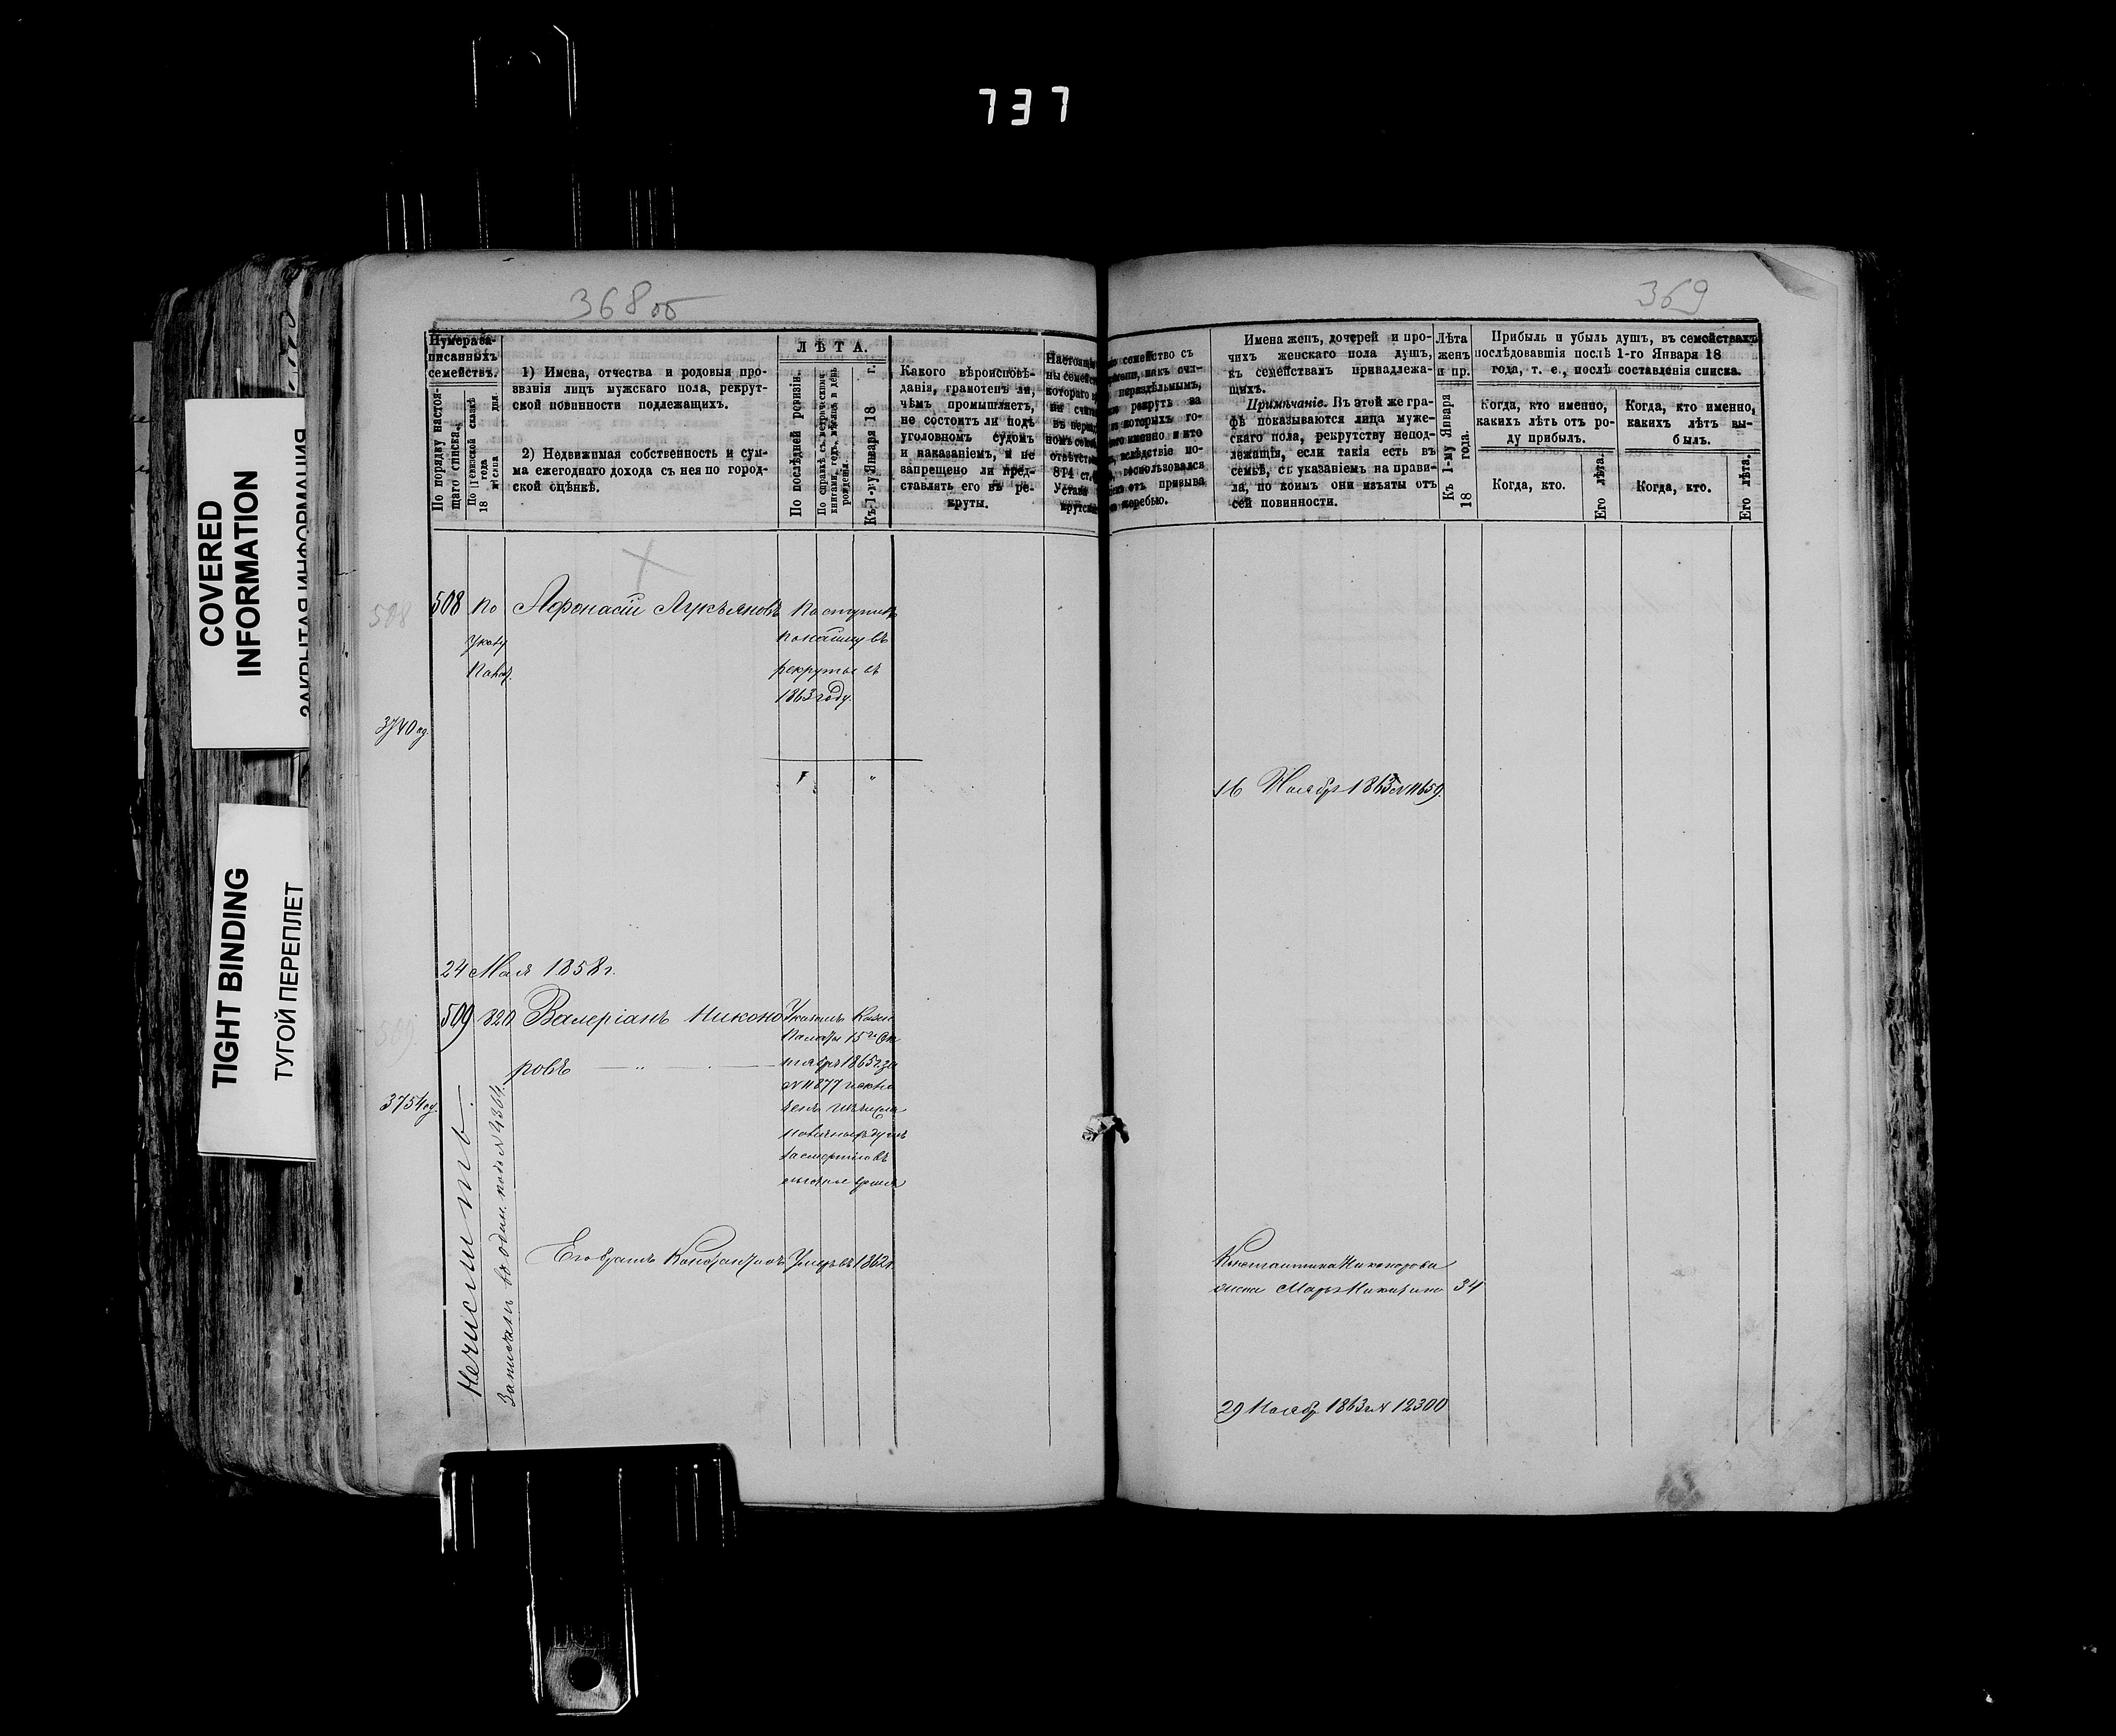 737
COVERED
INFORMATION
ЗАКРЫТАЯ ИНФОРМАЦИЯ
TIGHT BINDING
ТУГОЙ ПЕРЕПЛЕТ
368 об
Нумера за-
писанныхъ
семействъ.
По порядку настоя-
щаго списка.
По ревизской сказкѣ
18 года
мѣсяца дня.
1) Имена, отчества и родовыя про-
званія лицъ мужскаго пола, рекрут-
ской повинности подлежащихъ.
2) Недвижимая собственность и сум-
ма ежегоднаго дохода съ нея по город-
ской оцѣнкѣ.
ЛѢТА.
По послѣдней ревизіи.
По справкѣ съ метрическими
книгами, годъ, мѣсяцъ и день
рожденія.
Къ 1-му Января 18 г.
Какого вѣроисповѣ-
данія, грамотенъ ли,
чѣмъ промышляетъ,
не состоитъ ли подъ
уголовномъ судомъ
и наказаніемъ, и не
запрещено ли пред-
ставлять его въ ре-
круты.
508
508 По Афонасій Лукьяновъ Поступилъ
Указу по найму въ
Палат. рекруты въ
1863 году.
3740
24 Мая 1858 г.
509
509 820 Валеріанъ Никоно
ровъ
Указомъ Казен
Палаты 15 го Ок
тября 1865 г за
№ 11877 исклю
ченъ изъ числа
душъ
за смертію въ
3754
Нечисти
Записанъ въ один. подъ № 4364.
Его братъ Константинъ Умеръ въ 1862 г.
369
семейство съ
рекрутъ за
которыхъ го-
именно и кто
вслѣдствіе по-
воспользовался
отъ призыва
жеребью.
Имена женъ, дочерей и про-
чихъ женскаго пола душъ,
къ семействамъ принадлежа-
щихъ.
Примѣчаніе. Въ этой же гра-
фѣ показываются лица муже-
скаго пола, рекрутству непод-
лежащія, если такія есть въ
семьѣ, съ указаніемъ на прави-
ла, по коимъ они изъяты отъ
сей повинности.
Лѣта
женъ
и пр.
Къ 1-му Января
18 года.
Прибыль и убыль душъ, въ семействахъ
послѣдовавшія послѣ 1-го Января 18
года, т. е., послѣ составленія списка.
Когда, кто именно,
какихъ лѣтъ отъ ро-
ду прибылъ.
Когда, кто.
Его лѣта.
Когда, кто именно,
какихъ лѣтъ вы-
былъ.
Когда, кто.
Его лѣта.
16 Ноября 1863 № 11659.
Константина Никонорова
жена Марья Никитина 34
29 Ноябр 1863 г № 12300